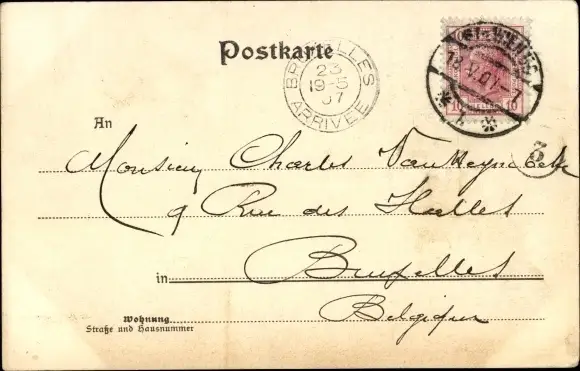 Postkarte
BRUXELLES
23
19-5
07
ARRIVEE
WIEN
10 10
3
An
Monsieur Charles Van
9 Rue des Halles
in Bruxelles
Belgique
Wohnung
Straße und Hausnummer